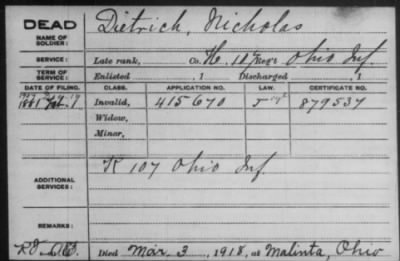 DEAD Dietrich, Nicholas
NAME OF SOLDIER:
SERVICE: Late rank, Co. H, Reg't Ohio Inf.
TERM OF SERVICE: Enlisted , 1 Discharged , 1
DATE OF FILING. CLASS. APPLICATION NO. LAW. CERTIFICATE NO.
Invalid, 415670 879537
Widow,
Minor,
ADDITIONAL SERVICES: K 107 Ohio Inf.
REMARKS:
Died Mar. 3, 1918, at Malinta, Ohio